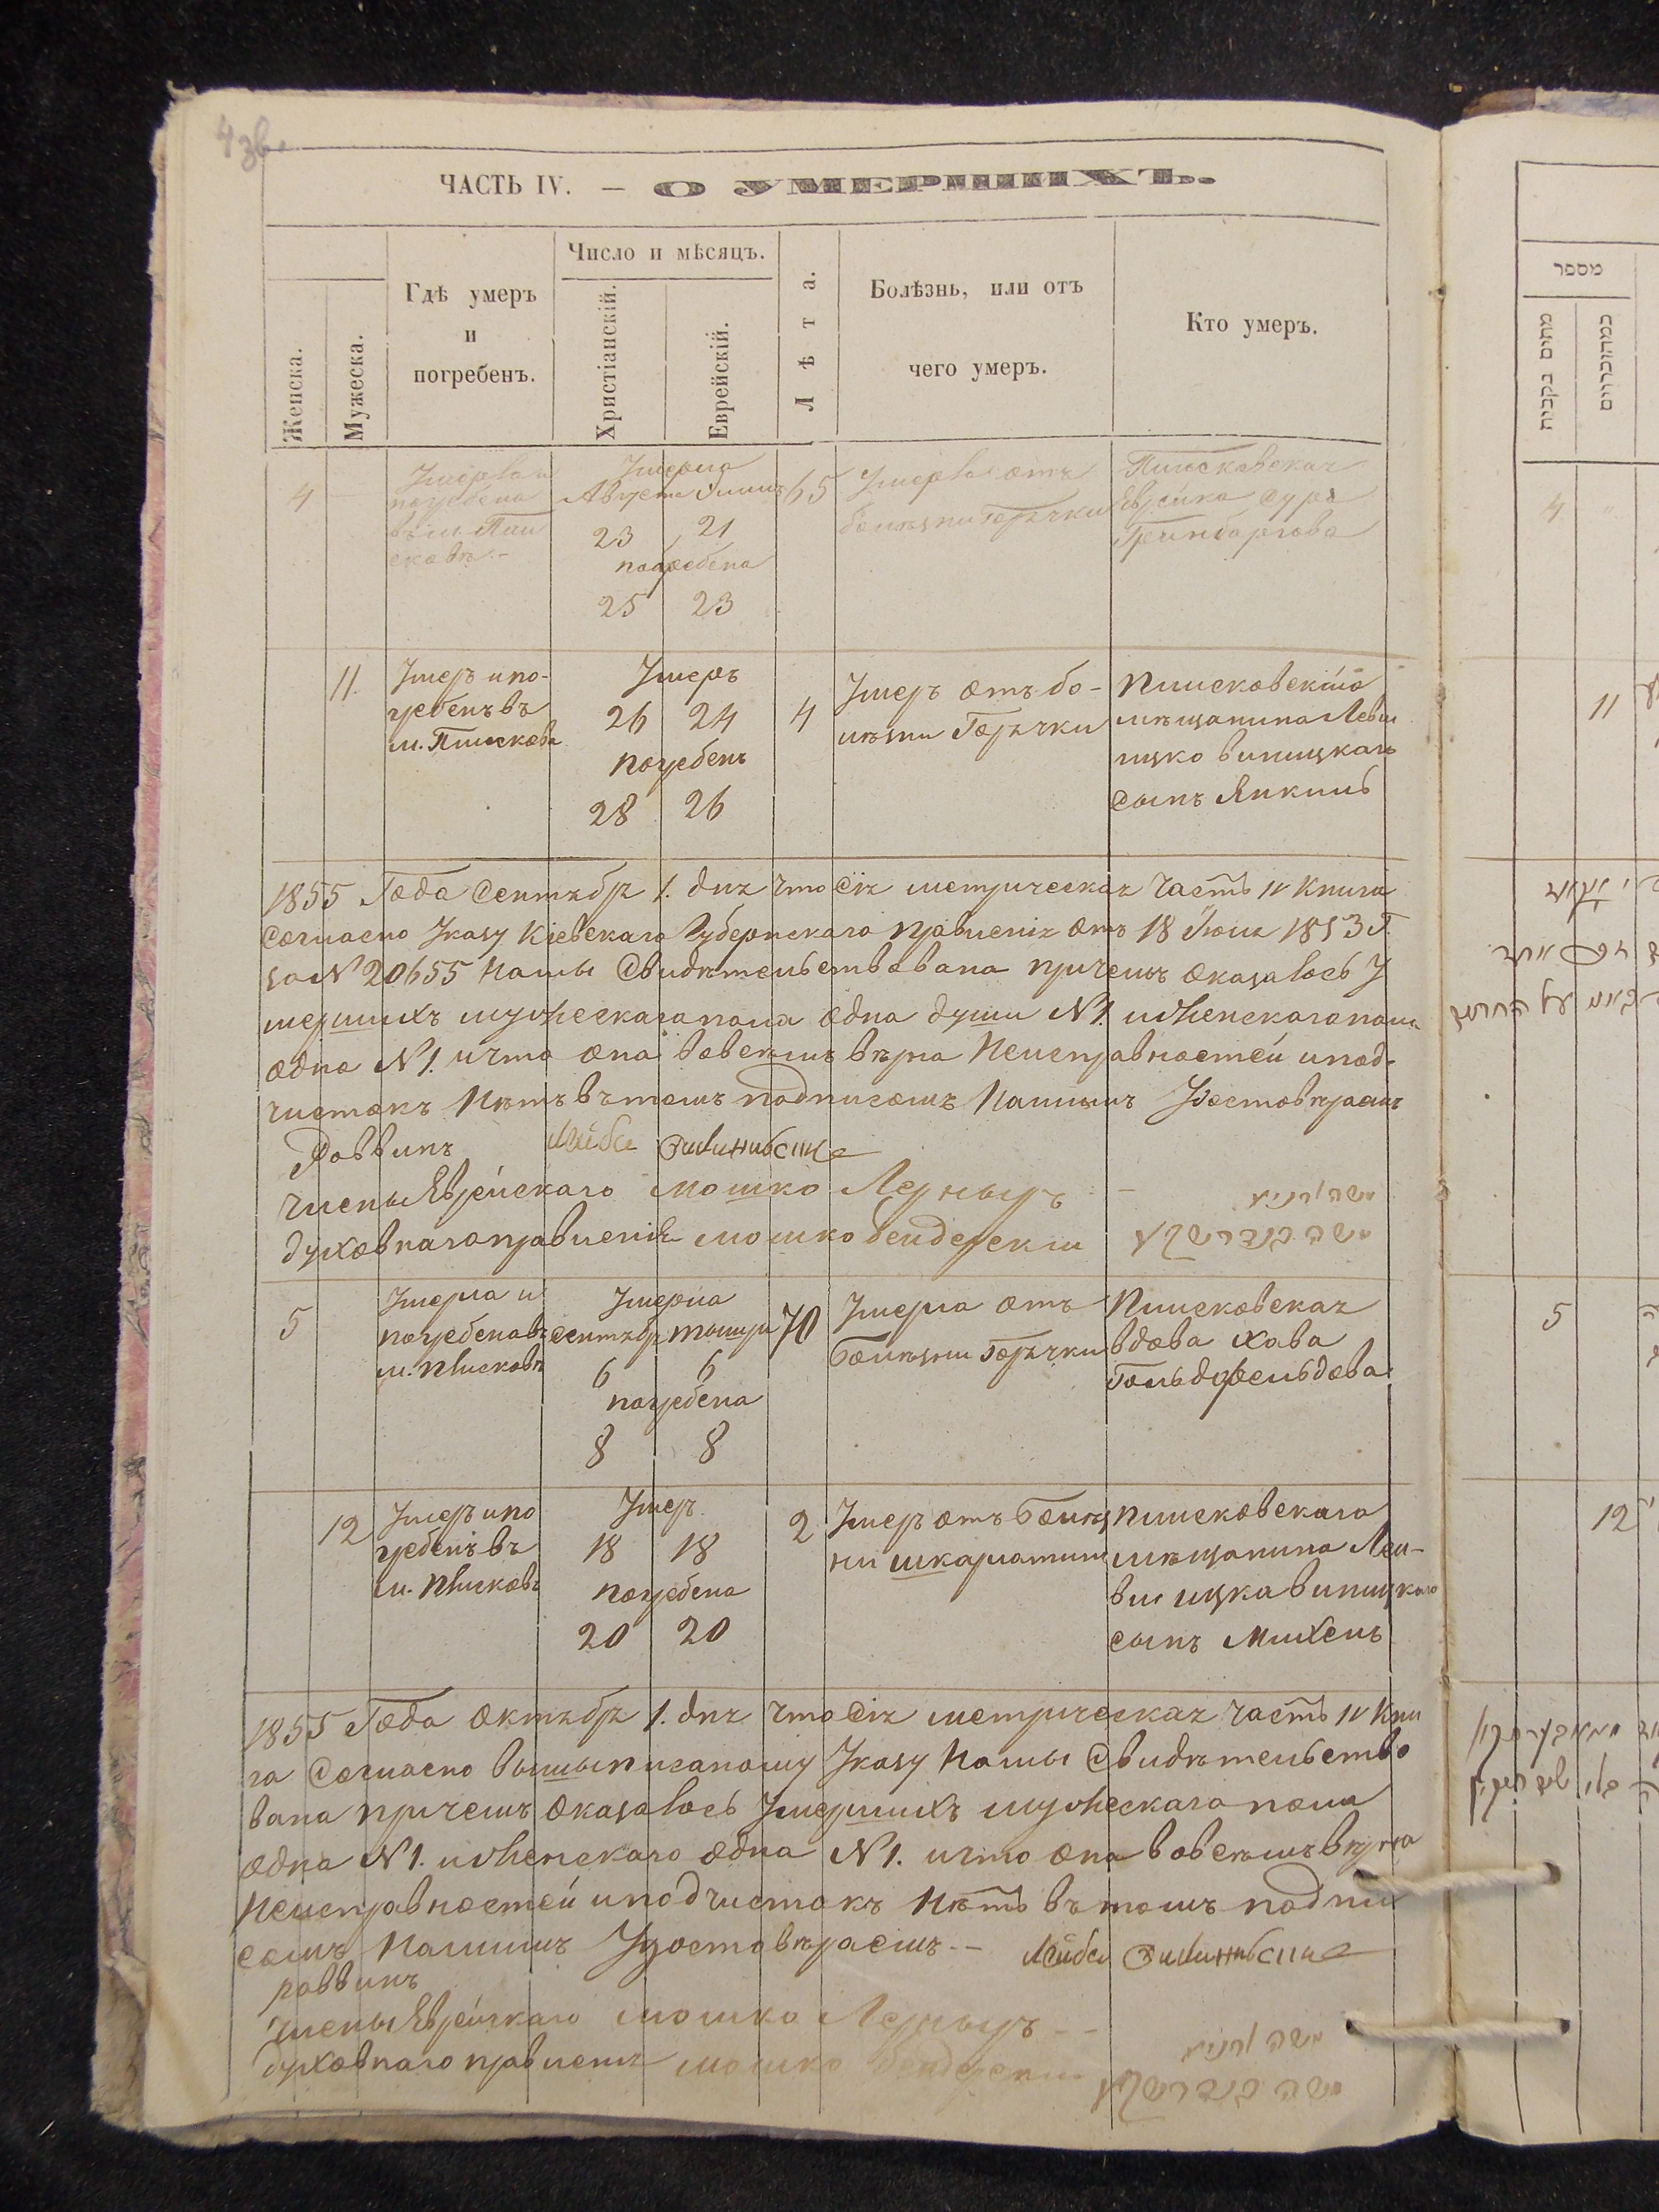 4 зв.
ЧАСТЬ IV. — О УМЕРШИХЪ.
Женска.
Мужеска.
Гдѣ умеръ
и
погребенъ.
Число и мѣсяцъ.
Христіанскій.
Еврейскій.
Лѣта.
Болѣзнь, или отъ
чего умеръ.
Кто умеръ.
4
Умерла и
погребена
въ м. Пли
сковѣ.-
Умерла
Августа
23 21
погребена
25 23
65
Умерла отъ
болѣзни Горячки
Плисковская
Еврейка Сура
Гринбаргова
11.
Умеръ и по-
гребенъ въ
м. Плискови
Умеръ
26 24
погребенъ
28 26
4
Умеръ отъ бо-
лѣзни Горячки
Плисковскаго
мѣщанина Леви
ицко Виницкаго
сынъ Янкиль
1855 Года Сентября 1. дня что Сія метрическая часть IV Книги
Согласно Указу Кіевскаго Губернскаго Правленія отъ 18 Іюля 1853 Г.
за N 20655 Нами Свидѣтельствована причемъ оказалось У
мершихъ мужескаго пола одна души N 1. и женскаго пола
одна N 1. и что она вовсемъ вѣрна Неисправностей и под-
чистокъ Нѣтъ въ томъ подписомъ Нашимъ Удостовѣраемъ
Раввинъ Лейбъ
Члены Еврейскаго мошко Лерныръ —
духовнаго правленія мошко бендерски
משה בנדרשקע
5
Умерла и
погребена въ
м. Плисковѣ
Умерла
Сентября тышри
6 6
погребена
8 8
70
Умерла отъ
Болѣзни Горячки
Плисковская
вдова Хава
Гольдфельдова
12
Умеръ и по
гребенъ въ
м. Плисковѣ
Умеръ
18 18
погребена
20 20
2
Умеръ отъ Болѣз
ни шкарлатини
Плисковскаго
мѣщанина Лей-
ви ицка Виницкаго
сынъ Михель
1855 Года Октября 1. дня что Сія метрическая часть IV Кни
га Согласно вышыписаному Указу Нами Свидѣтельство
вана причемъ оказалось Умершихъ мужескаго пола
одна N 1. и женскаго одна N 1. и что она вовсемъ вѣрна
Неисправностей и подчистокъ Нѣтъ въ томъ подпи
сомъ Нашимъ Удостовѣраемъ.— Лейбъ
раввинъ
Члены Еврейскаго мошко Лерныръ - -
духовнаго правленія мошко бендерски
משה בנדרשקע
מספר
4
11
5
12